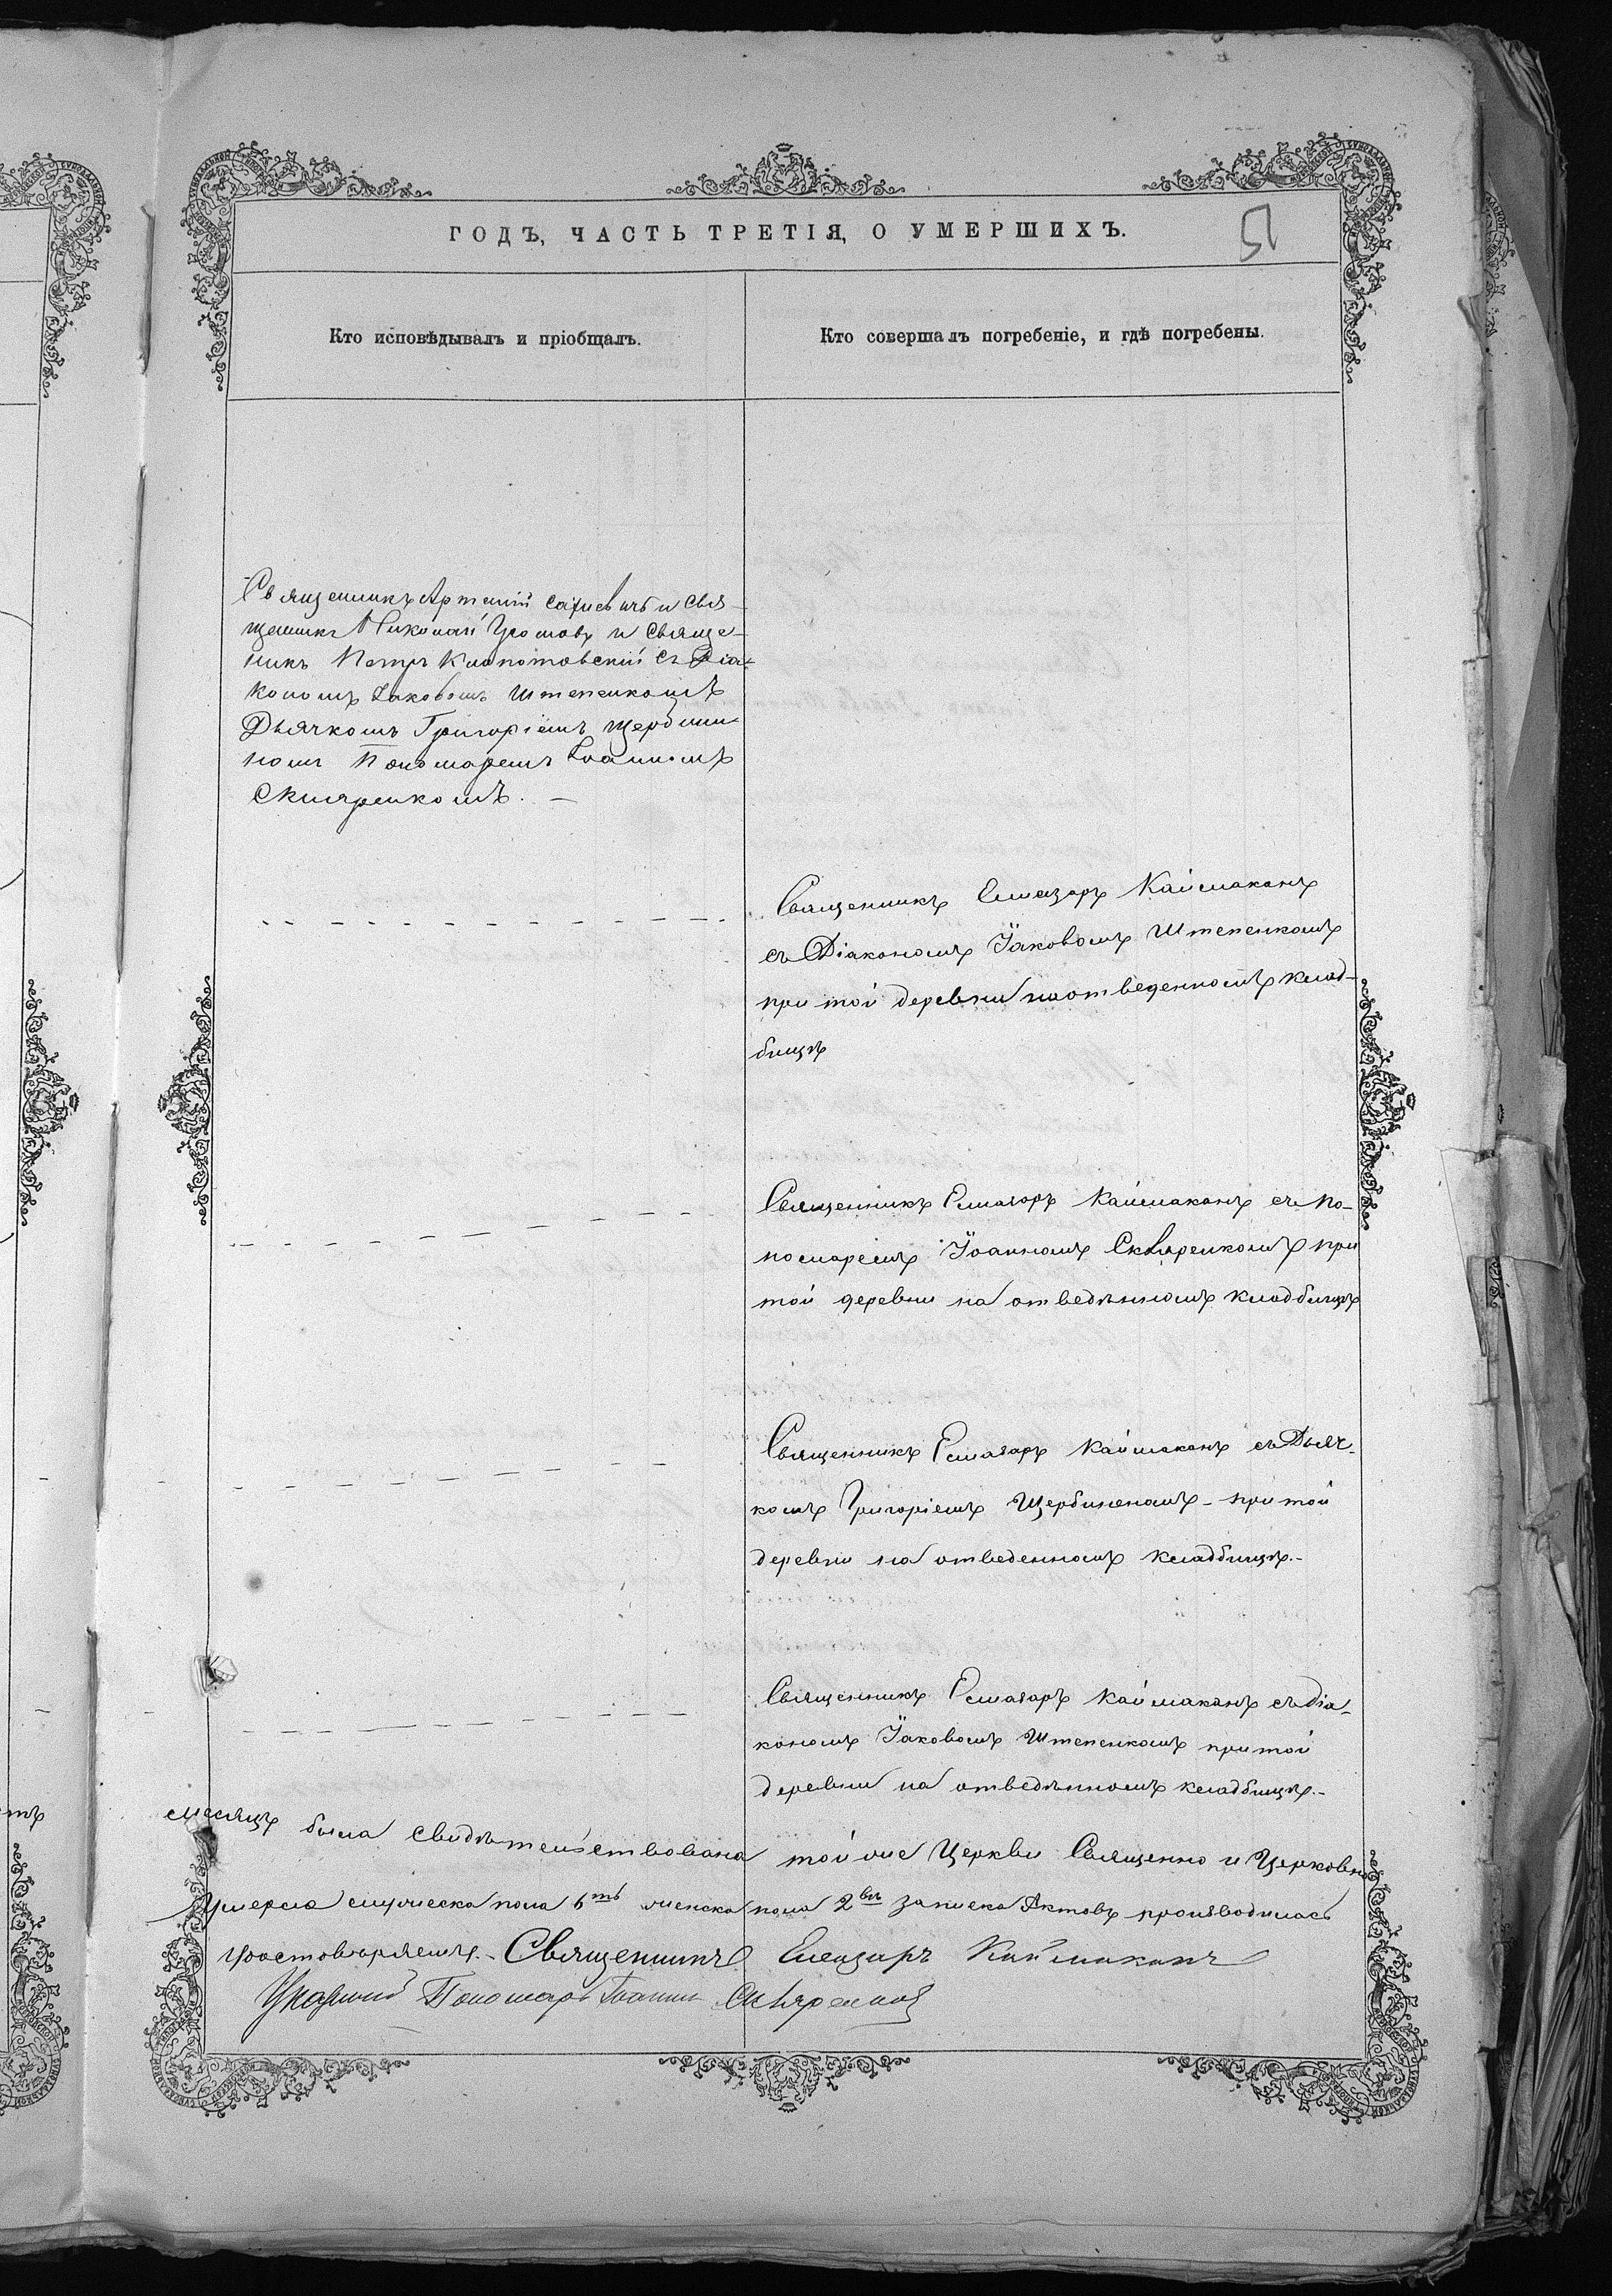 ГОДЪ, ЧАСТЬ ТРЕТІЯ, О УМЕРШИХЪ.
Кто исповѣдывалъ и пріобщалъ.
Кто совершалъ погребеніе, и гдѣ погребены.
Священникъ Артемій и Свя-
щенникъ Николай и Свяще-
никъ Петръ Клопотовскій съ Діа-
кономъ Іаковомъ Штепенкомъ
Дьячкомъ Григоріемъ Щербини-
номъ Пономаремъ Іоанномъ
Скляренкомъ. —
Священникъ Елеазаръ Каймаканъ
съ Діакономъ Іаковомъ Штепенкомъ
при той деревни на отведенномъ клад-
бищѣ
Священникъ Елеазаръ Каймаканъ съ По-
номаремъ Іоанномъ Скляренкомъ при
той деревни на отведѣнномъ кладбищѣ
Священникъ Елеазаръ Каймаканъ съ Дьяч-
комъ Григоріемъ Щербиненомъ - при той
деревни на отведенномъ кладбищѣ. -
Священникъ Елеазаръ Каймаканъ съ Діа-
кономъ Іаковомъ Штепенкомъ при той
деревни на отведѣнномъ кладбищѣ. -
месяцъ была свидѣтельствована той же Церкви Священно и Церковно
Умерло мужеска пола 6ть женска пола 2вѣ записка Актовъ производилась
удостовѣряемъ. - Священникъ Елеазаръ Каймаканъ
Указный Пономарь Іоаннъ Скляренко